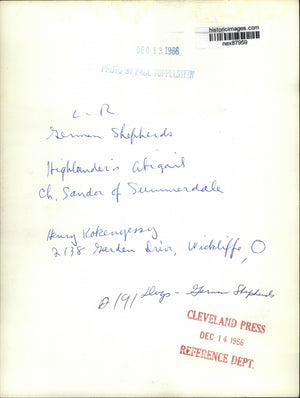 historicimages.com
nex87959
DEC 13 1966
PHOTO BY PAUL TOPPELSTEIN
L - R
German Shepherds
Highlander's Abigail
Ch. Sandor of Summerdale
Henry
2138 Garden Drive, Wickliffe, O
Dogs - German Shepherds
CLEVELAND PRESS
DEC 14 1966
REFERENCE DEPT.